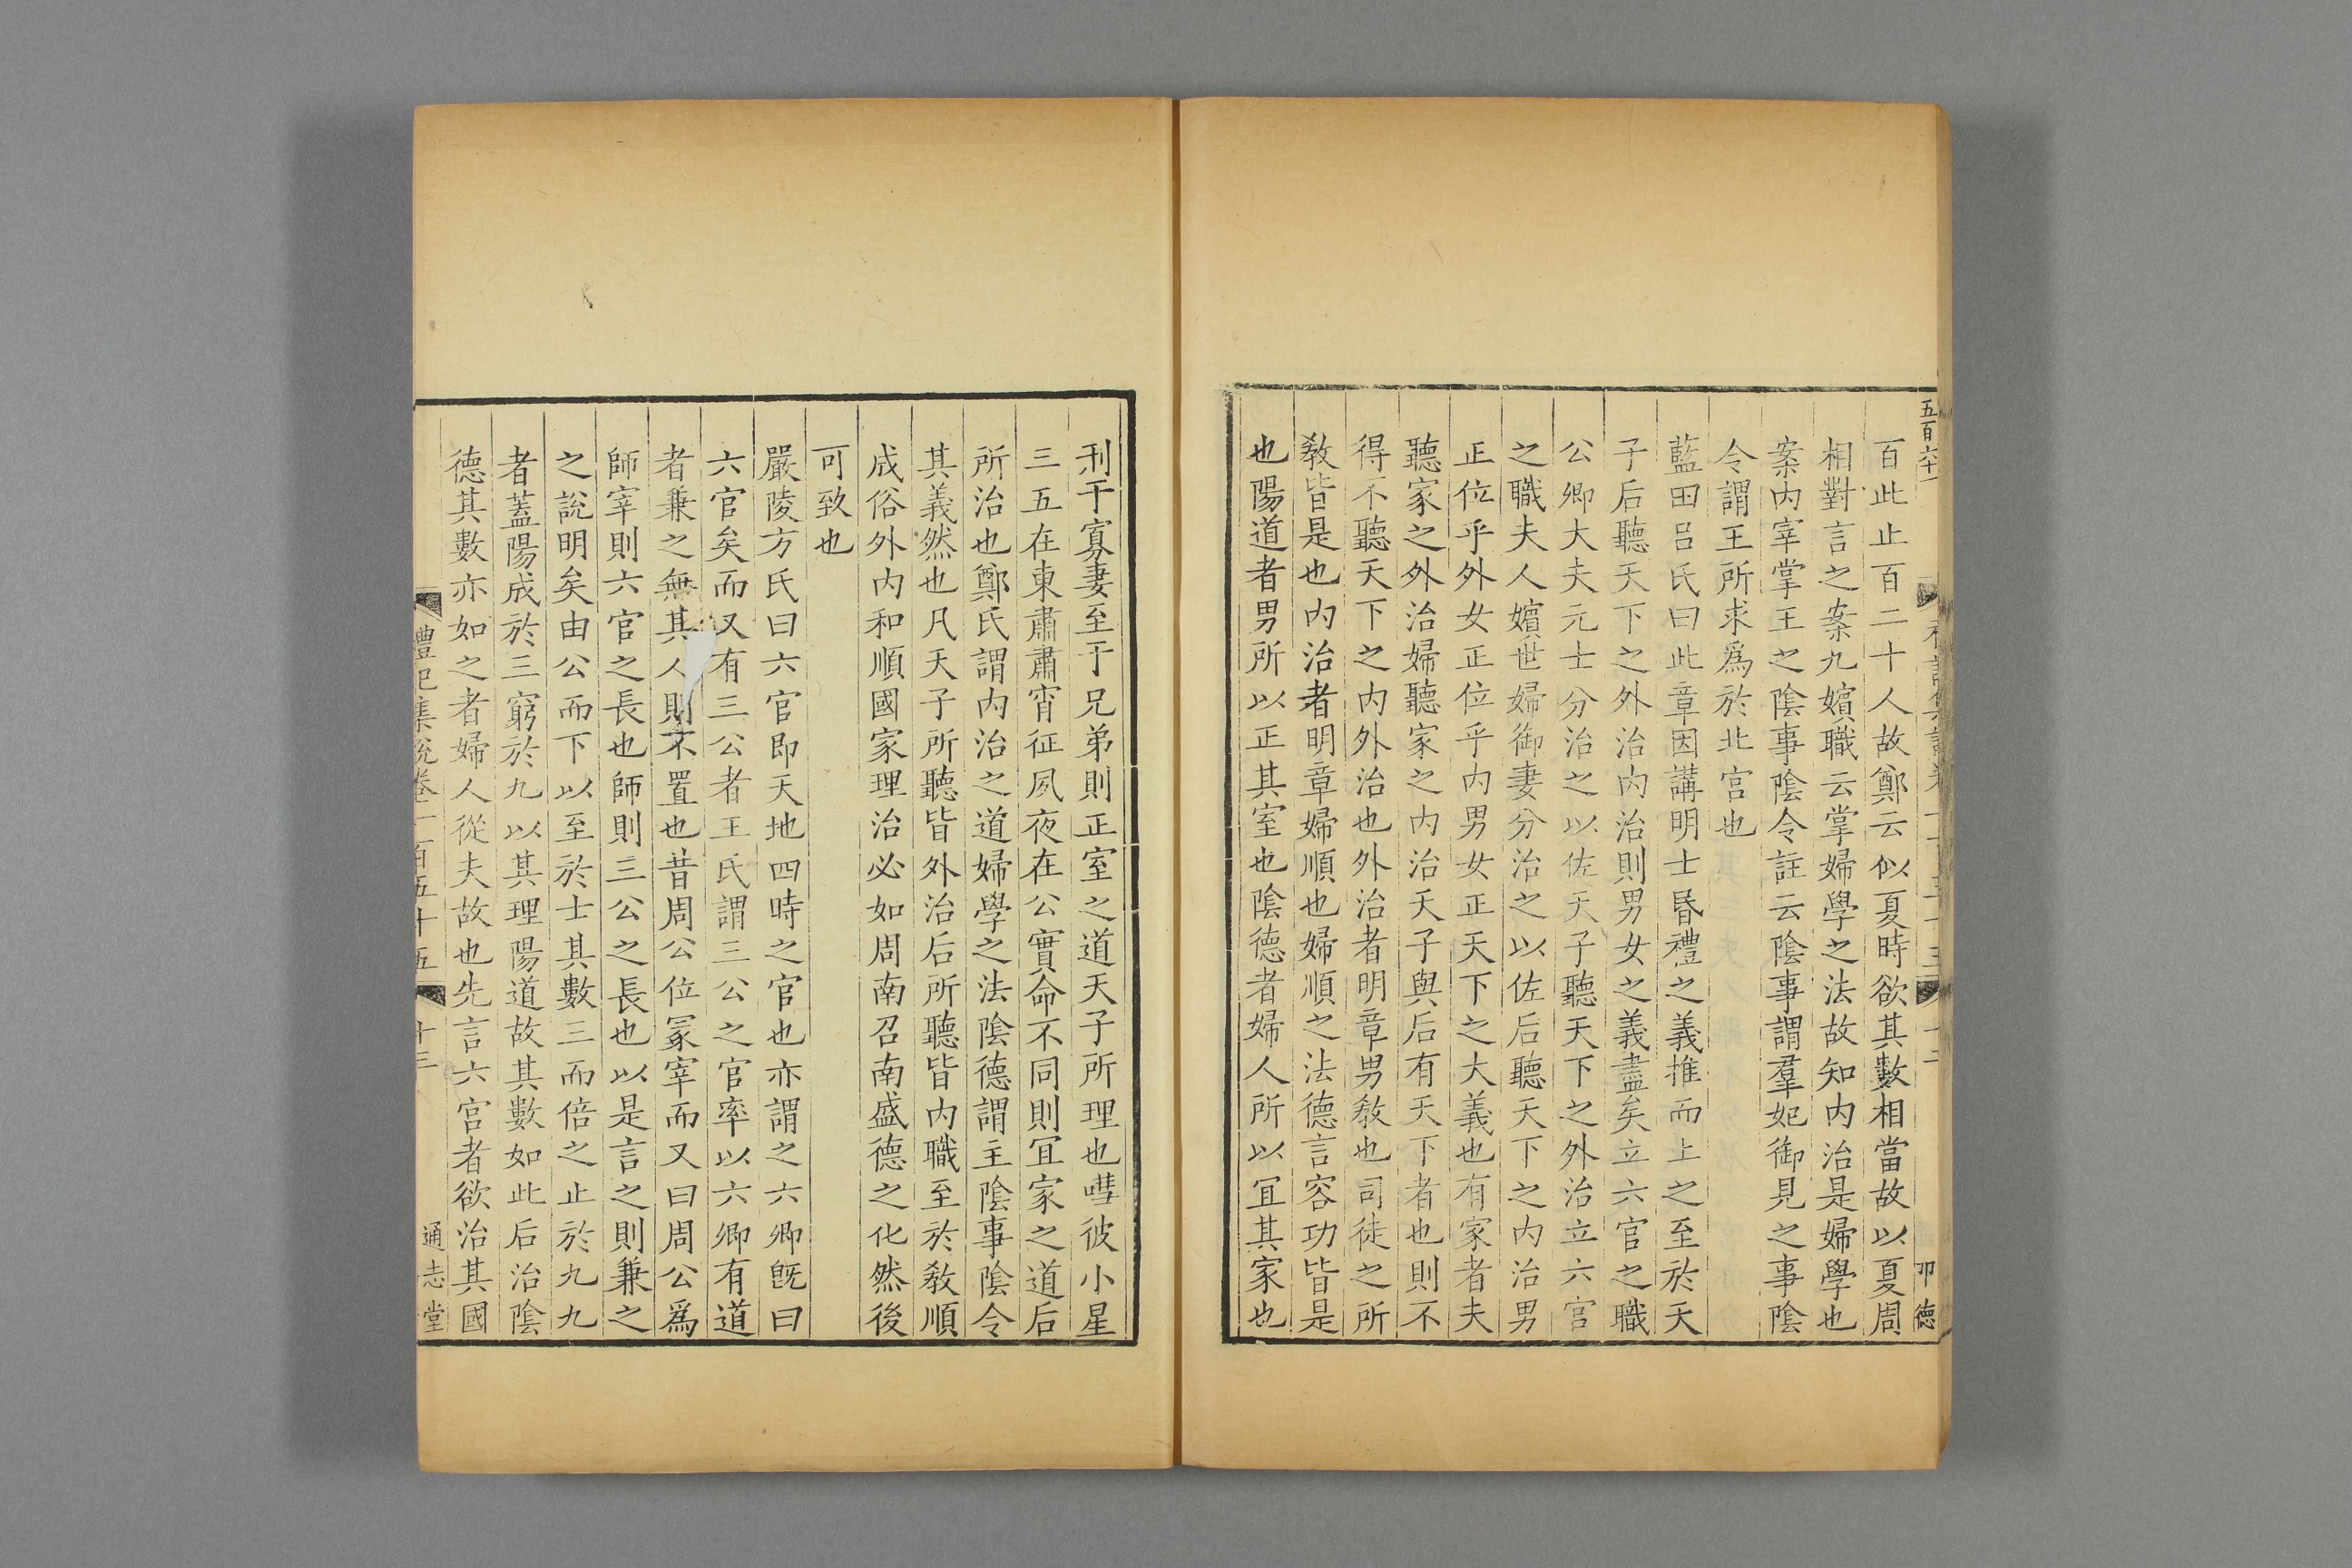 五百六十一
百此止百二十人故鄭云似夏時欲其數相當故以夏周
相對言之案九嬪職云掌婦學之法故知内治是婦學也
案内宰掌王之陰事陰令註云陰事謂羣妃御見之事陰
令謂王所求爲於北宫也
藍田吕氏曰此章因講明士昬禮之義推而上之至於天
子后聽天下之外治内治則男女之義盡矣立六官之職
公卿大夫元士分治之以佐天子聽天下之外治立六宫
之職夫人嬪世婦御妻分治之以佐后聽天下之内治男
正位乎外女正位乎内男女正天下之大義也有家者夫
聽家之外治婦聽家之内治天子與后有天下者也則不
得不聽天下之内外治也外治者明章男敎也司徒之所
敎皆是也内治者明章婦順也婦順之法德言容功皆是
也陽道者男所以正其室也陰德者婦人所以宜其家也
刑于寡妻至于兄弟則正室之道天子所理也嘒彼小星
三五在東肅肅宵征夙夜在公實命不同則宜家之道后
所治也鄭氏謂内治之道婦學之法陰德謂主陰事陰令
其義然也凡天子所聽皆外治后所聽皆内職至於敎順
成俗外内和順國家理治必如周南召南盛德之化然後
可致也
嚴陵方氏曰六官即天地四時之官也亦謂之六卿旣曰
六官矣而又有三公者王氏謂三公之官率以六卿有道
者兼之無其人則不置也昔周公位冢宰而又曰周公爲
師宰則六官之長也師則三公之長也以是言之則兼之
之說明矣由公而下以至於士其數三而倍之止於九九
者蓋陽成於三窮於九以其理陽道故其數如此后治陰
德其數亦如之者婦人從夫故也先言六宫者欲治其國
禮記集說卷一百五十五 十三 通志堂